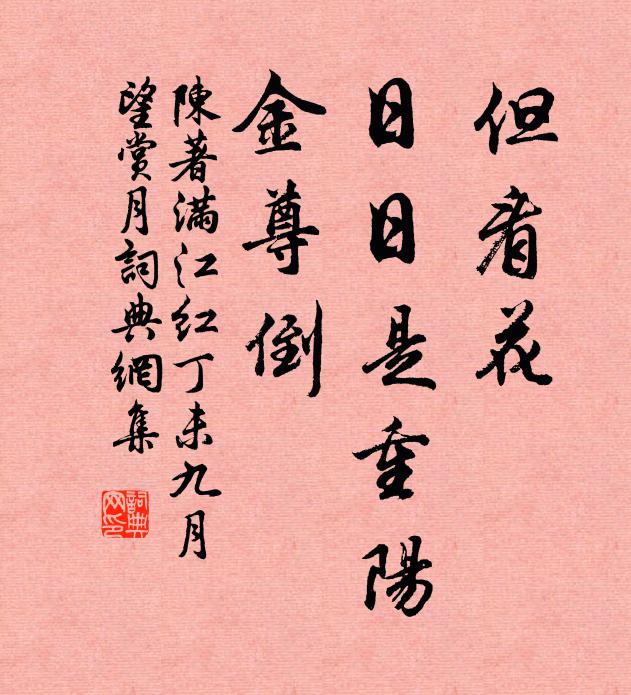 但看花
日日是重陽
金尊倒
陳著滿江紅丁未九月
望賞月詞典網集
詞典网印